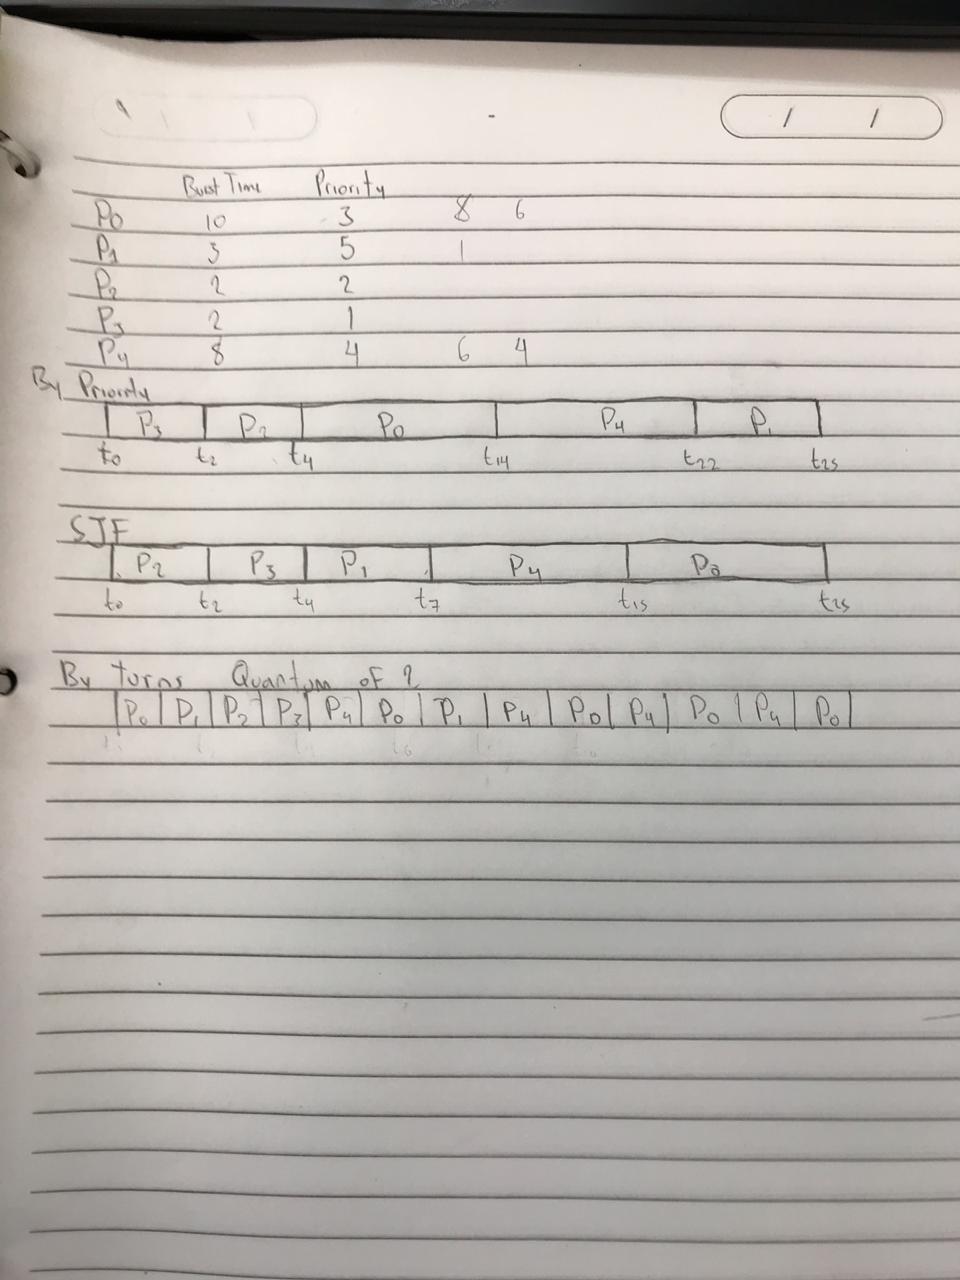 / /
Burst Time Priority
P0 10 3 8 6
P1 3 5 1
P2 2 2
P3 2 1
P4 8 4 6 4
By Priority
P3 P2 P0 P4 P1
t0 t2 t4 t14 t22 t25
SJF
P2 P3 P1 P4 P0
t0 t2 t4 t7 t15 t25
By turns Quantum of 2
P0 P1 P2 P3 P4 P0 P1 P4 P0 P4 P0 P4 P0